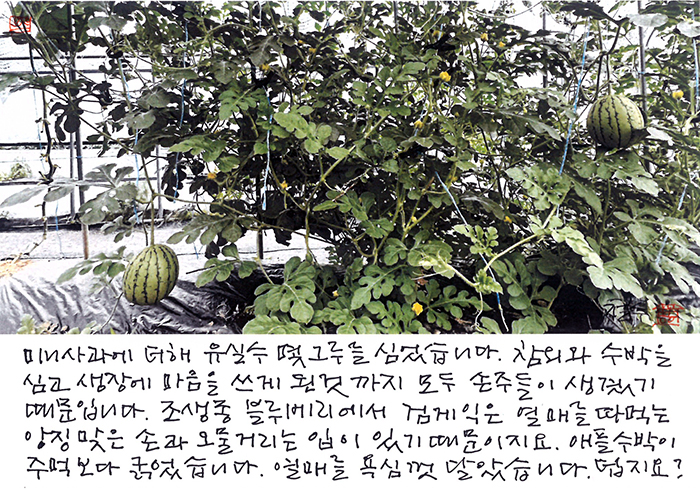 미니사과에 더해 유실수 몇그루를 심었습니다. 참외와 수박을
심고 생장에 마음을 쓰게 된것 까지 모두 손주들이 생겼기
때문입니다. 조생종 블루베리에서 검게익은 열매를 따먹는
앙징맞은 손과 오물거리는 입이 있기 때문이지요. 애플수박이
주먹보다 굵었습니다. 열매를 욕심껏 달았습니다. 덥지요?